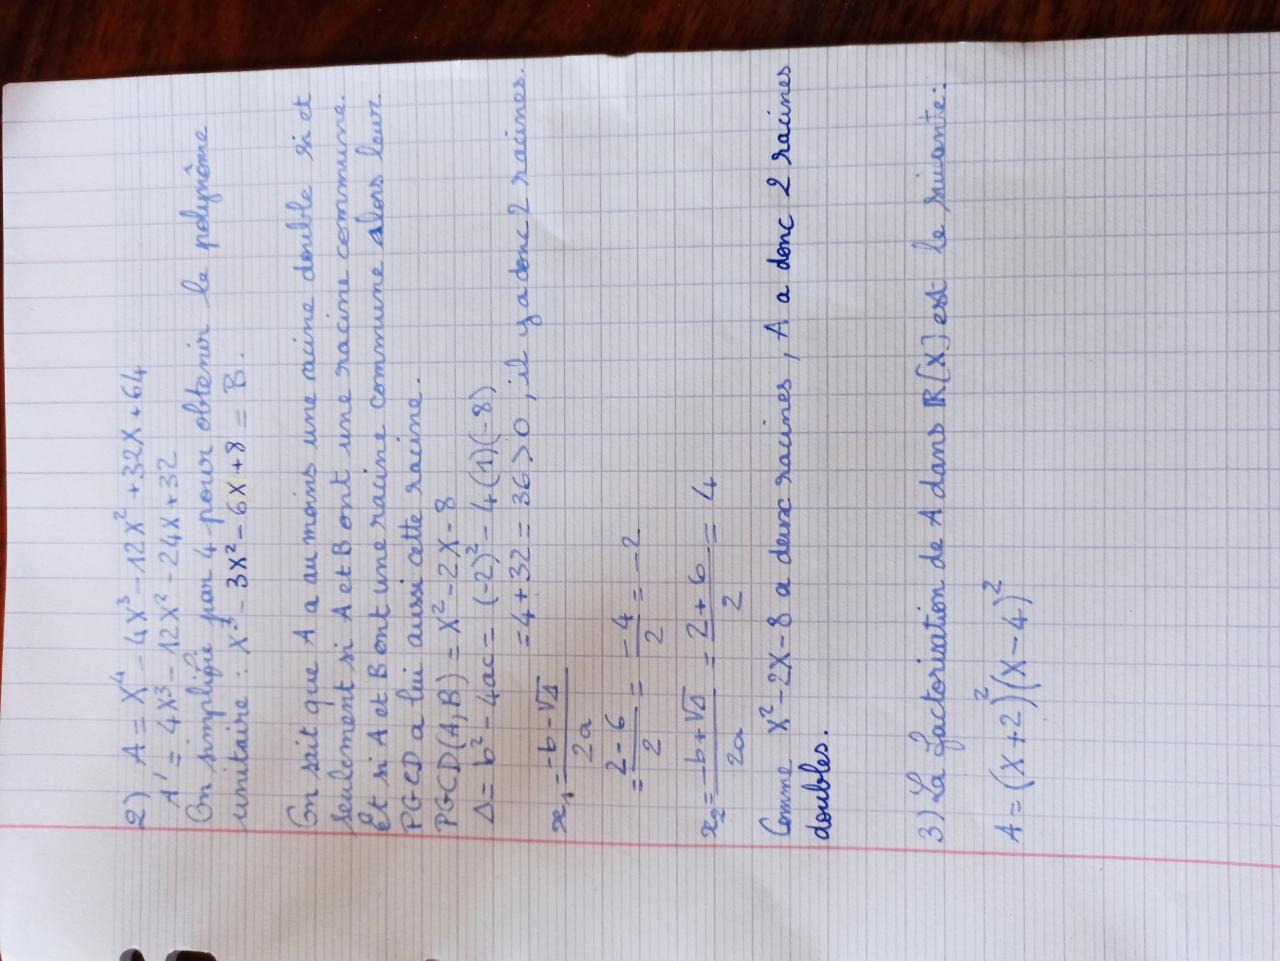 2) A = X⁴ - 4X³ - 12X² + 32X + 64
A' = 4X³ - 12X² - 24X + 32
On simplifie par 4 pour obtenir le polynôme
unitaire : X³ - 3X² - 6X + 8 = B.
On sait que A a au moins une racine double si et
seulement si A et B ont une racine commune.
Et si A et B ont une racine commune alors leur
PGCD a lui aussi cette racine.
PGCD(A,B) = X² - 2X - 8
Δ = b² - 4ac = (-2)² - 4(1)(-8)
= 4 + 32 = 36 > 0, il y a donc 2 racines.
x₁ = (-b - √Δ)/2a
= (2 - 6)/2 = -4/2 = -2
x₂ = (-b + √Δ)/2a = (2 + 6)/2 = 4
Comme X² - 2X - 8 a deux racines, A a donc 2 racines
doubles.
3) La factorisation de A dans ℝ[X] est la suivante :
A = (X + 2)² (X - 4)²